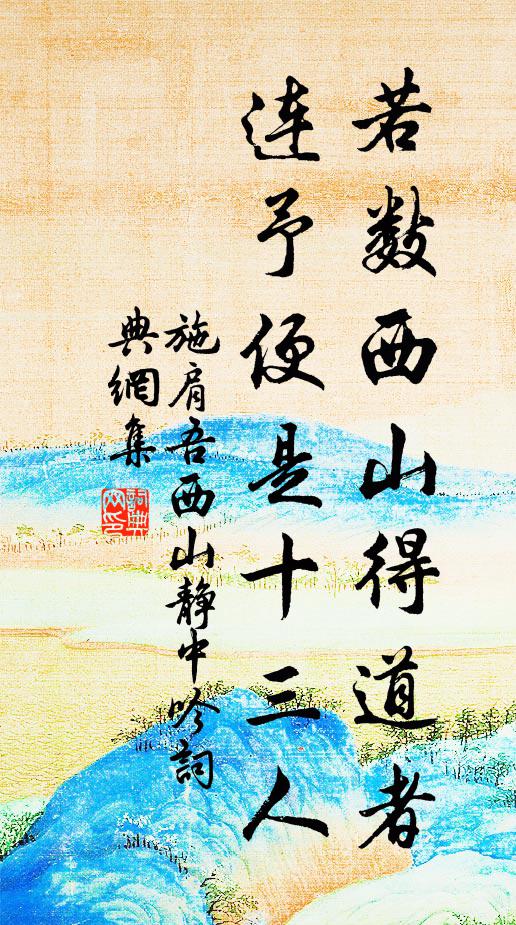 若数西山得道者
连予便是十三人
施肩吾西山静中吟詞
典網集
詞典网印